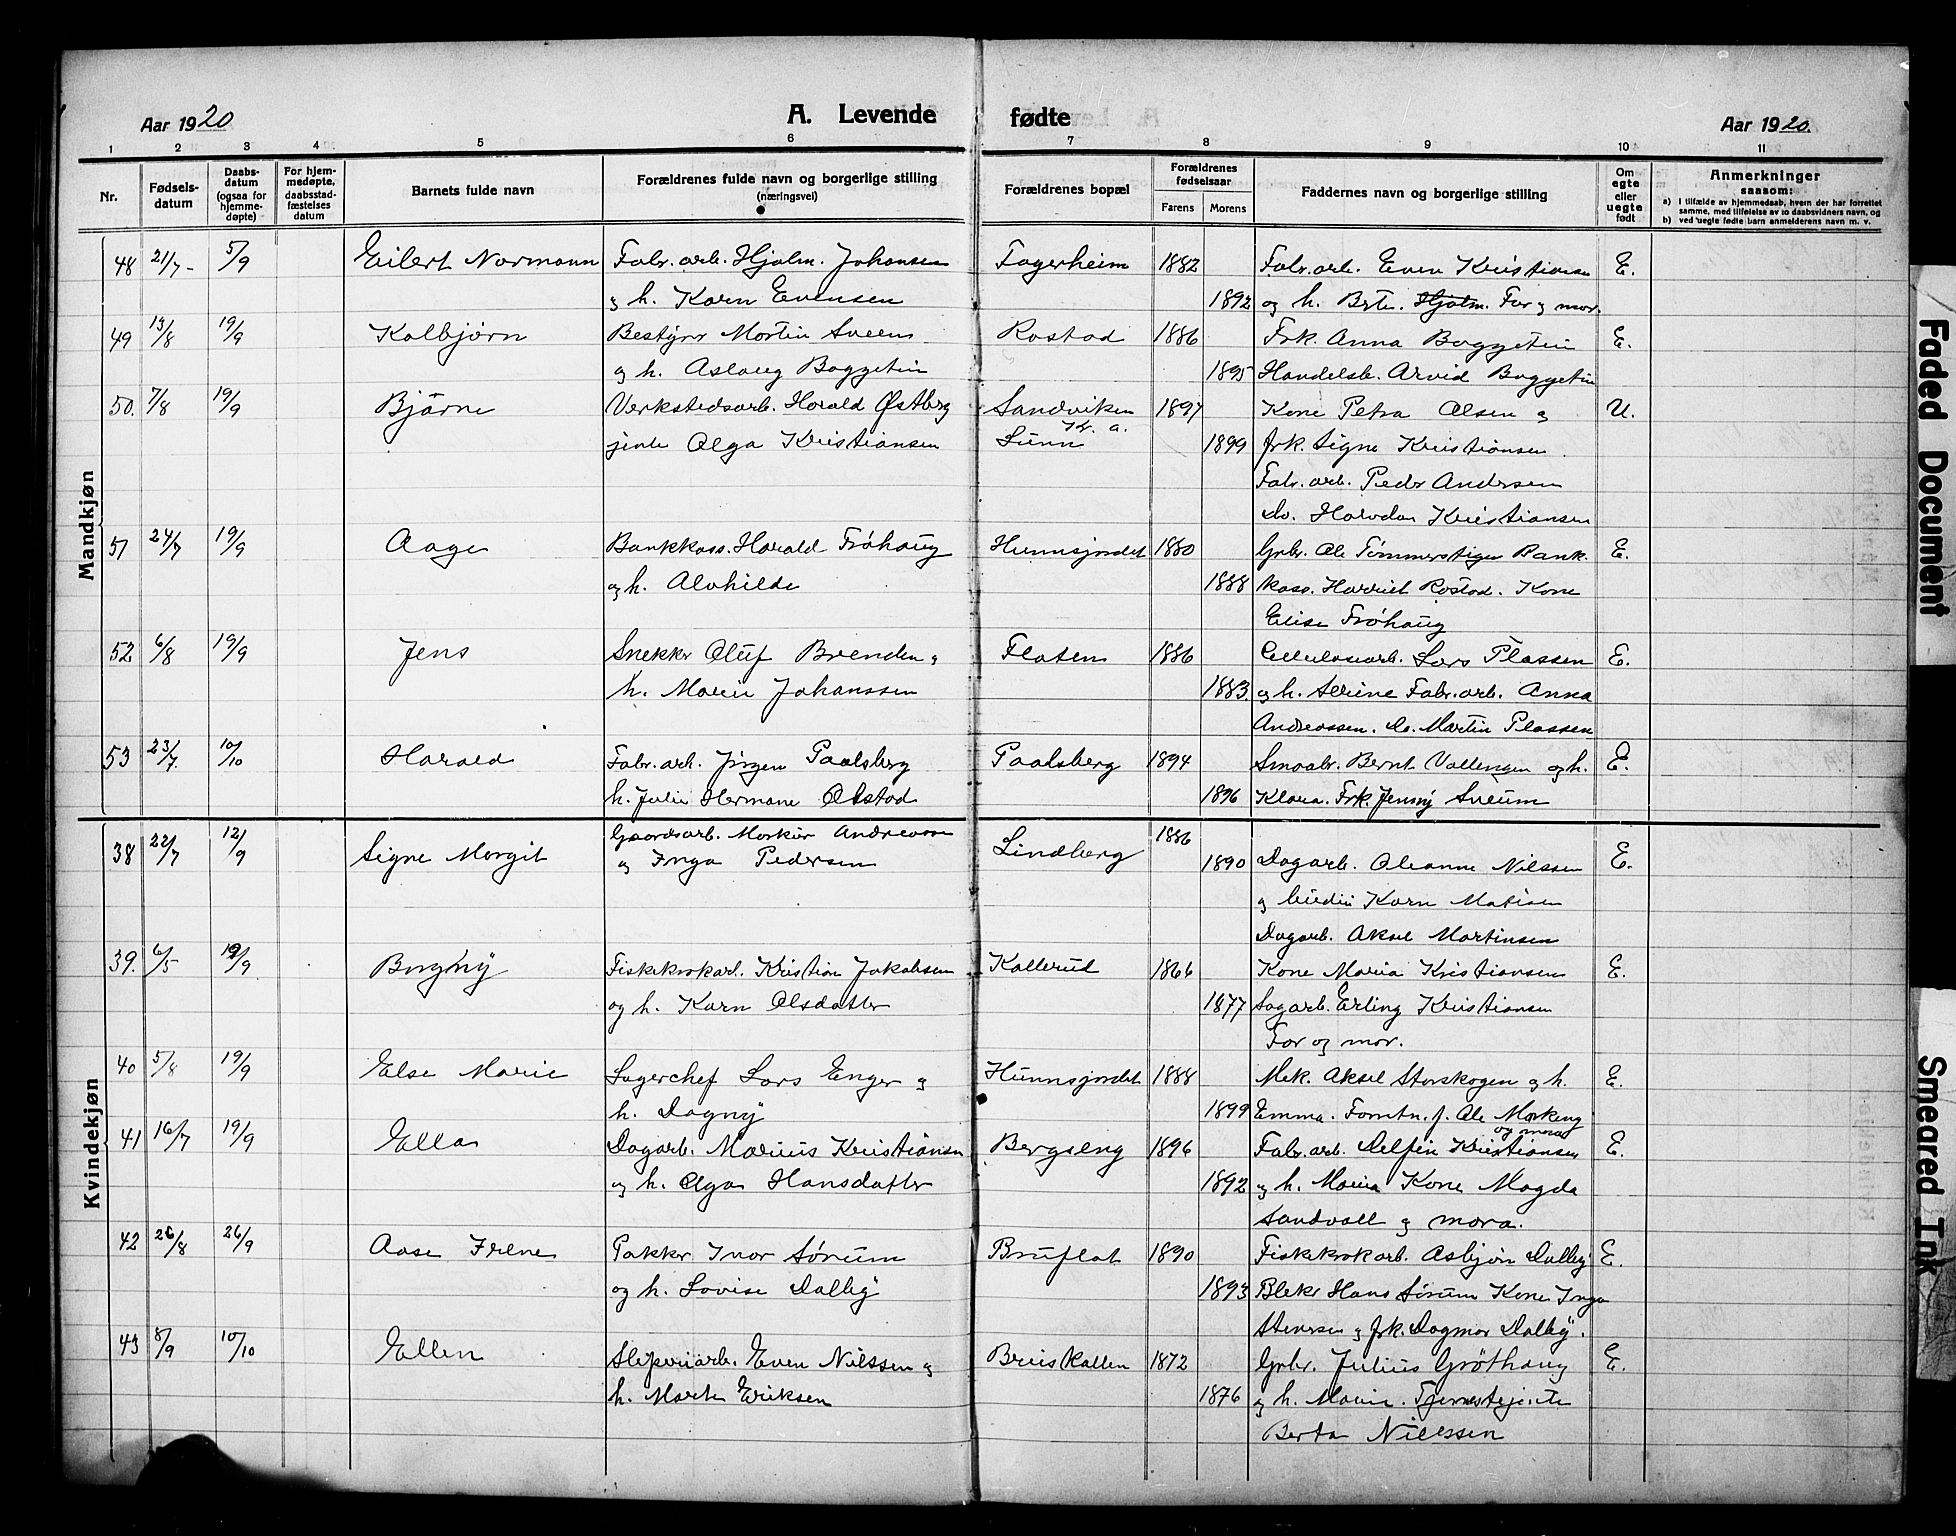 Aar 1920
A. Levende
fødte
Aar 1920.
1 2 3 4 5 6 7 8 9 10 11
Nr.
Fødsels-
datum
Daabs-
datum
(ogsaa for
hjemme-
døpte)
For hjem-
medøpte,
daabsstad-
fæstelses
datum
Barnets fulde navn
Forældrenes fulde navn og borgerlige stilling
(næringsvei)
Forældrenes bopæl
Forældrenes
fødselsaar
Farens Morens
Faddernes navn og borgerlige stilling
Om
egte
eller
uegte
født
Anmerkninger
saasom:
a) I tilfælde av hjemmedaab, hvem der har forrettet
samme, med tilføielse av to daabsvidners navn, og
b) ved uegte fødte barn anmelderens navn m. v.
Mandkjøn
48 21/7 5/9 Eilert Normann Fabr. arb. Hjalm. Johansen Fagerheim 1882 Fabr. arb. Even Kristiansen E.
og h. Karn Evensen 1892 og h. Brte. Hjalm. Far og mor.
49 13/8 19/9 Kolbjørn Bestyrer Martin Sveen Rostad 1886 Frk. Anna Baggetin E.
og h. Aslaug Baggetin 1895 Handelsb. Arvid Baggetin
50. 7/8 19/9 Bjarne Verkstedsarb. Harald Østberg Sandviken 1897 Kone Petra Olsen og U.
Kr. a.
jente Olga Kristiansen Sunn 1899 frk. Signe Kristiansen.
Fabr. arb. Peder Andersen
Do. Halvdan Kristiansen
51 24/7 19/9 Aage Bankkass. Harald Frøhaug Hunnsjordet 1880 Grbr. Ole Tømmerstigen Bank. E.
og h. Alvhilde 1888 kass. Harriet Rostad. Kone
Elise Frøhaug
52 6/8 19/9 Jens Snekker Oluf Brenden og Flaten 1886 Cellulosearb. Lars Plassen E.
h. Marie Johanssen 1883 og h. Serine Fabr. arb. Anna
Andreassen. Do. Martin Plassen
53 23/7. 10/10 Harald Fabr. arb. Jørgen Paalsberg Paalsberg 1894 Smaabr. Bernt Vallengen og h. E.
h. Julie Hermane Olstad 1896 Klara. Frk. Jenny Sveum
Kvindekjøn
38 22/7 12/9 Signe Margit Gaardsarb. Markus Andreassen Lindberg 1886
og Inga Pedersen 1890 Dagarb. Oleanne Nilssen E.
og Karn Matisen
Dagarb. Aksel Martinsen
39. 6/5 19/9 Borghy Fiskekrokarb. Kristian Jakobsen Kallerud 1866 Kone Maria Kristiansen E.
og h. Karn Olsdatter 1877 Sagarb. Erling Kristiansen
Far og mor.
40 5/8 19/9 Else Marie Lagerchef Lars Enger og Hunnsjordet 1888 Mek. Aksel Storskogen og h. E.
h. Dagny 1899 Emma. Forretn. f. Ole Morkeng
og mora
41 16/7 19/9 Ella Dagarb. Marius Kristiansen Bergseng 1896 Fabr. arb. Delfin Kristiansen E.
og h. Olga Hansdatter 1892 og h. Maria Kone Magda
Sandvoll og mora.
42 26/8 26/9 Aase Irene Pakker Ivar Sørum Bruflat 1890 Fiskekrokarb. Asbjørn Dalby E.
og h. Lovise Dalby 1893 Bleker Hans Sørum Kone Inga
Stenersen og frk. Dagmar Dalby.
43 8/9 10/10 Ellen Sliperiarb. Even Nilssen og Bruiskallen 1872 Grbr. Julius Grøthaug E.
h. Marte Eriksen 1876 og h. Marie. Tjenestejente
Berta Nilssen
Faded Document
Smeared Ink